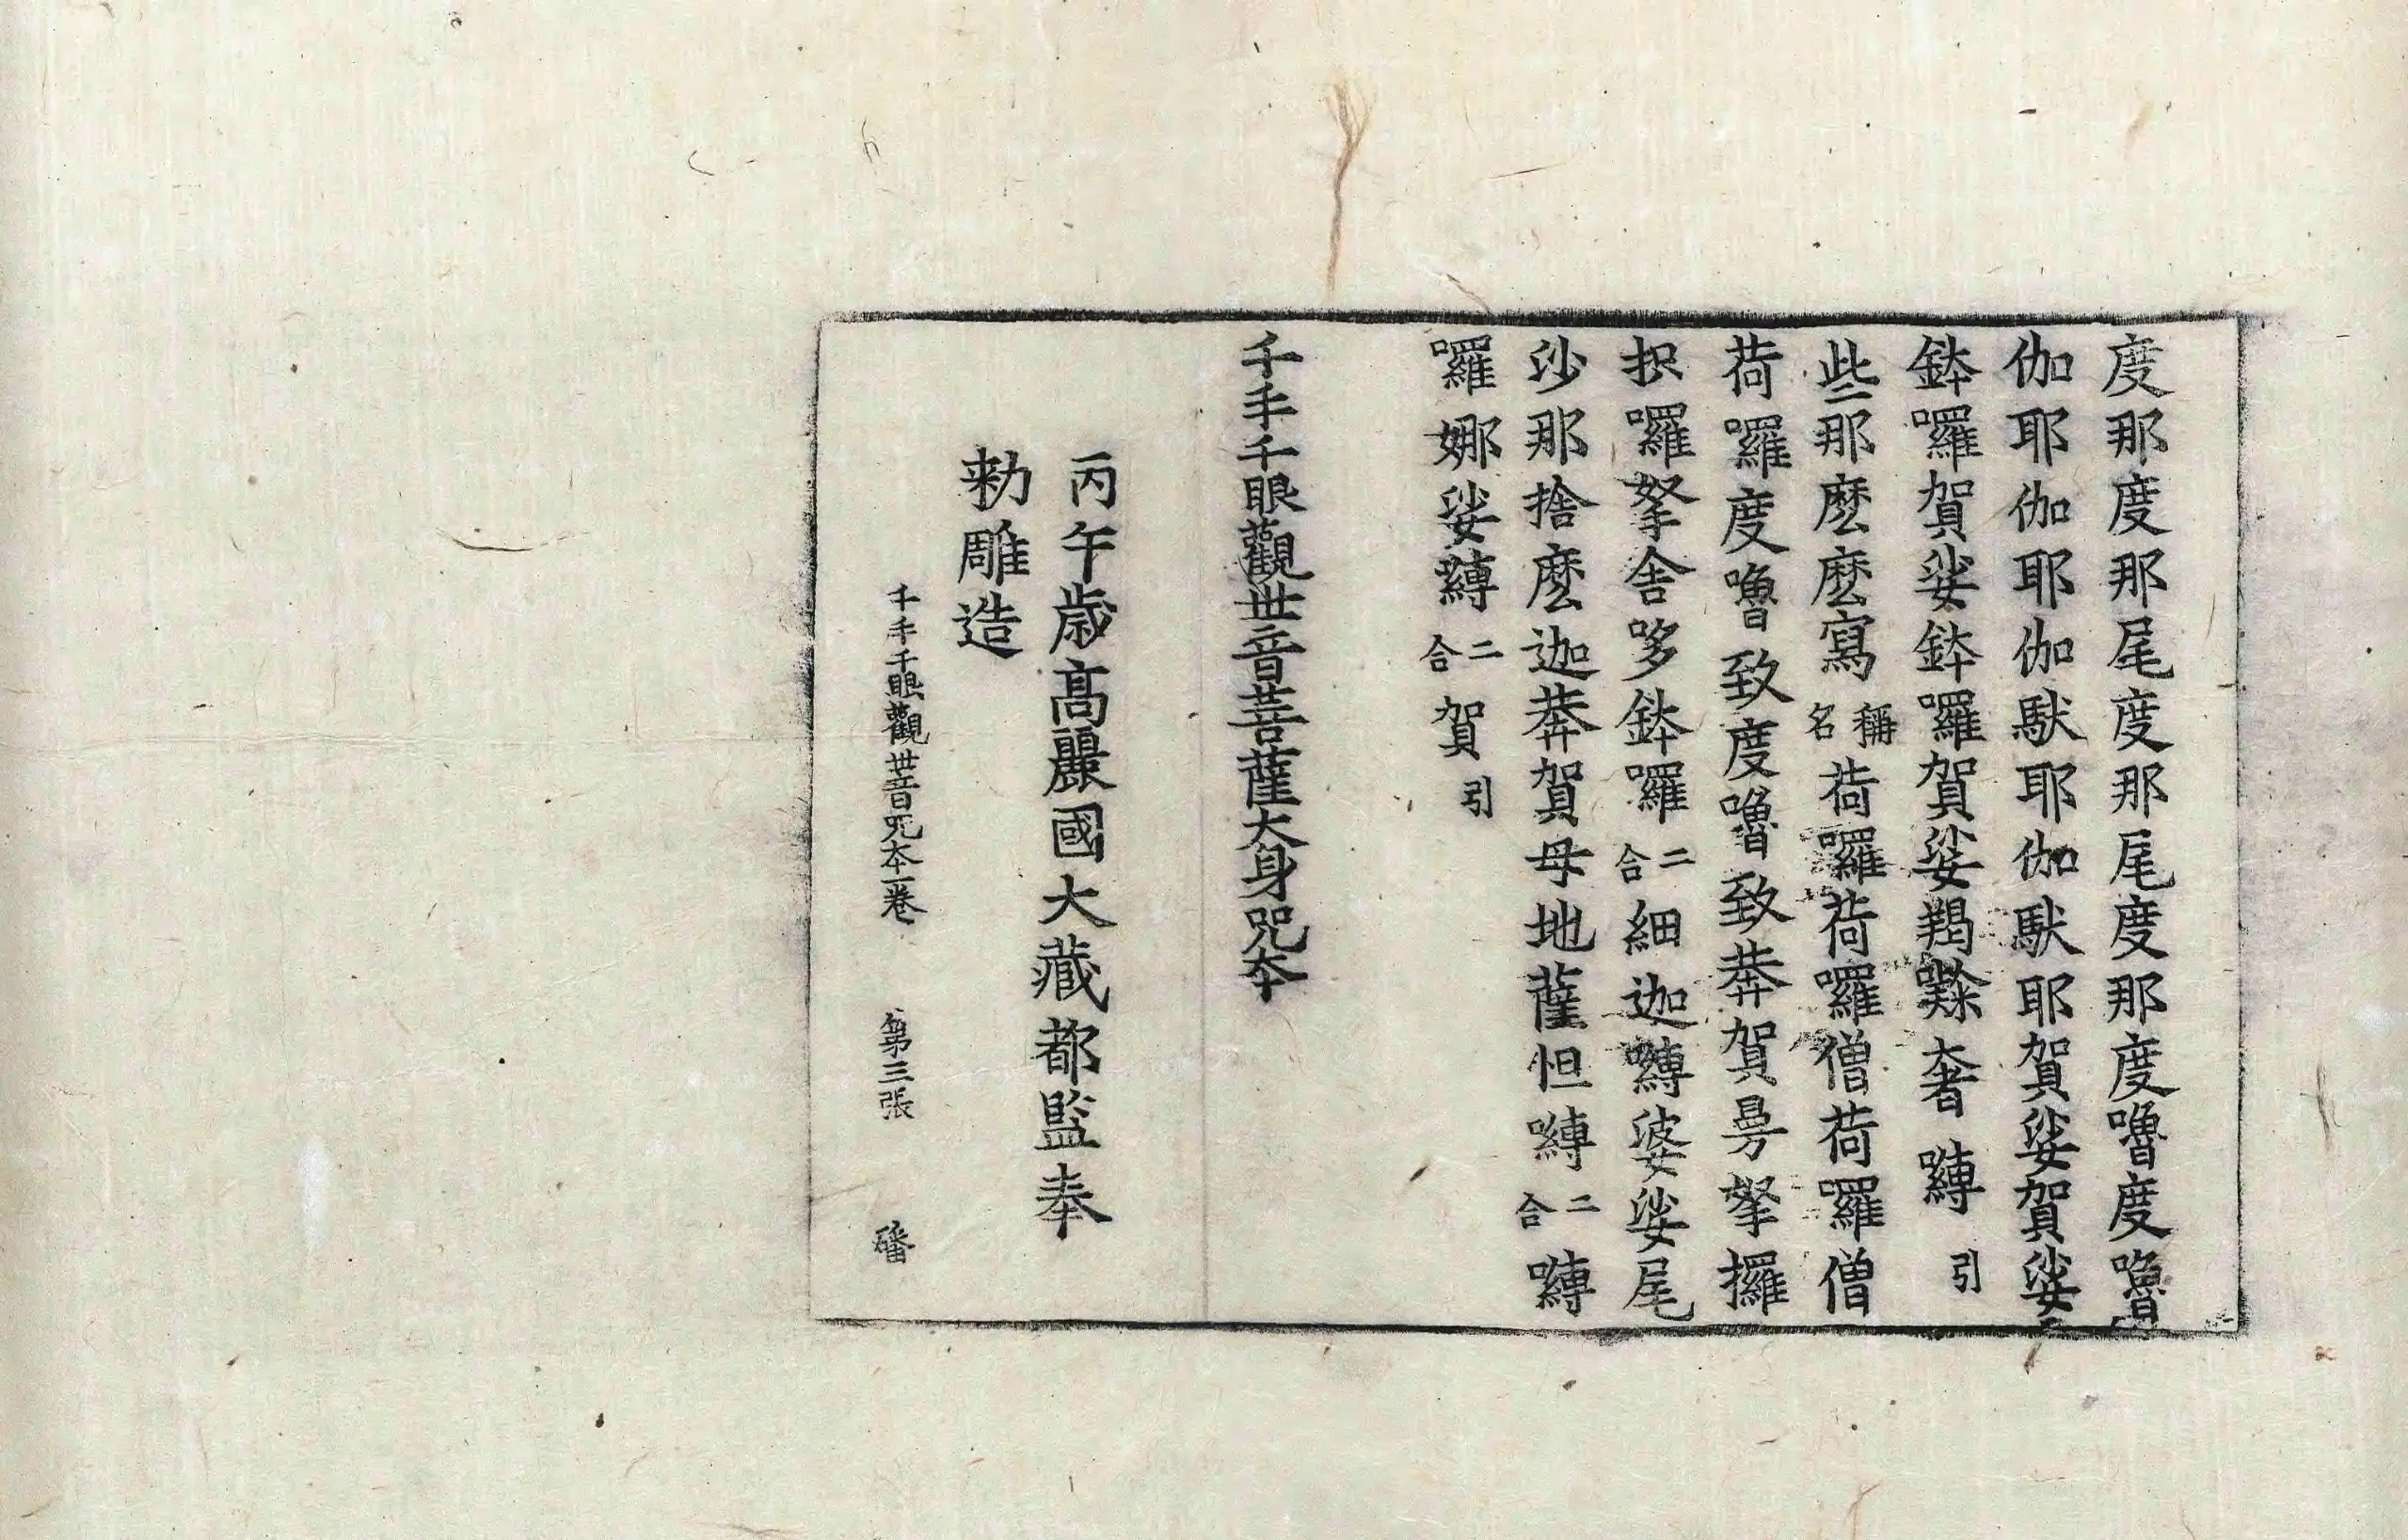 度那度那尾度那尾度那度嚕度嚕
伽耶伽耶伽馱耶伽馱耶賀娑賀娑
鉢囉賀娑鉢囉賀娑羯㘑奢嚩引
些那麽麽寫稱名荷囉荷囉僧荷囉僧
荷囉度嚕致度嚕致莾賀曼拏攞
抧囉拏舍哆鉢囉二合細迦嚩婆娑尾
沙那捨麽迦莾賀母地薩怛嚩二合嚩
囉娜娑縛二合賀引
千手千眼觀世音菩薩大身呪夲
丙午歲高麗國大藏都監奉
勑雕造
千手千眼觀世音呪夲一卷 第三張 磻